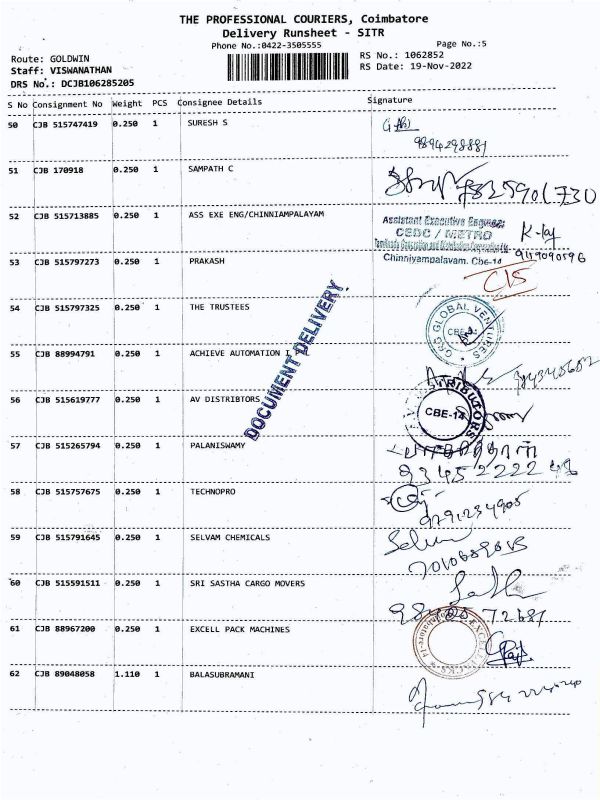 THE PROFESSIONAL COURIERS, Coimbatore
Delivery Runsheet - SITR
Phone No.:0422-3505555 Page No.:5
Route: GOLDWIN RS No.: 1062852
Staff: VISWANATHAN RS Date: 19-Nov-2022
DRS No.: DCJB106285205
S No Consignment No Weight PCS Consignee Details Signature
50 CJB 515747419 0.250 1 SURESH S
9894298881
51 CJB 170918 0.250 1 SAMPATH C
52 CJB 515713885 0.250 1 ASS EXE ENG/CHINNIAMPALAYAM
Assistant Executive Engineer
CEDC / METRO
Tamilnadu Generation and Distribution Corporation Ltd.
Chinniyampalayam, Cbe-14
53 CJB 515797273 0.250 1 PRAKASH
54 CJB 515797325 0.250 1 THE TRUSTEES
GRG GLOBAL VENTURES
55 CJB 88994791 0.250 1 ACHIEVE AUTOMATION I
DOCUMENT DELIVERY
56 CJB 515619777 0.250 1 AV DISTRIBTORS
DISTRIBUTORS
CBE-14
57 CJB 515265794 0.250 1 PALANISWAMY
58 CJB 515757675 0.250 1 TECHNOPRO
9791234905
59 CJB 515791645 0.250 1 SELVAM CHEMICALS
60 CJB 515591511 0.250 1 SRI SASTHA CARGO MOVERS
61 CJB 88967200 0.250 1 EXCELL PACK MACHINES
62 CJB 89048058 1.110 1 BALASUBRAMANI